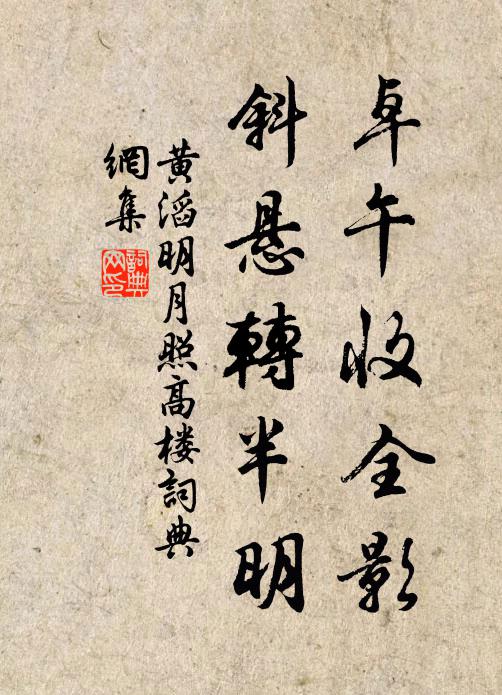 卓午收全影
斜悬轉半明
黄滔明月照高楼詞典
網集
詞典
网印